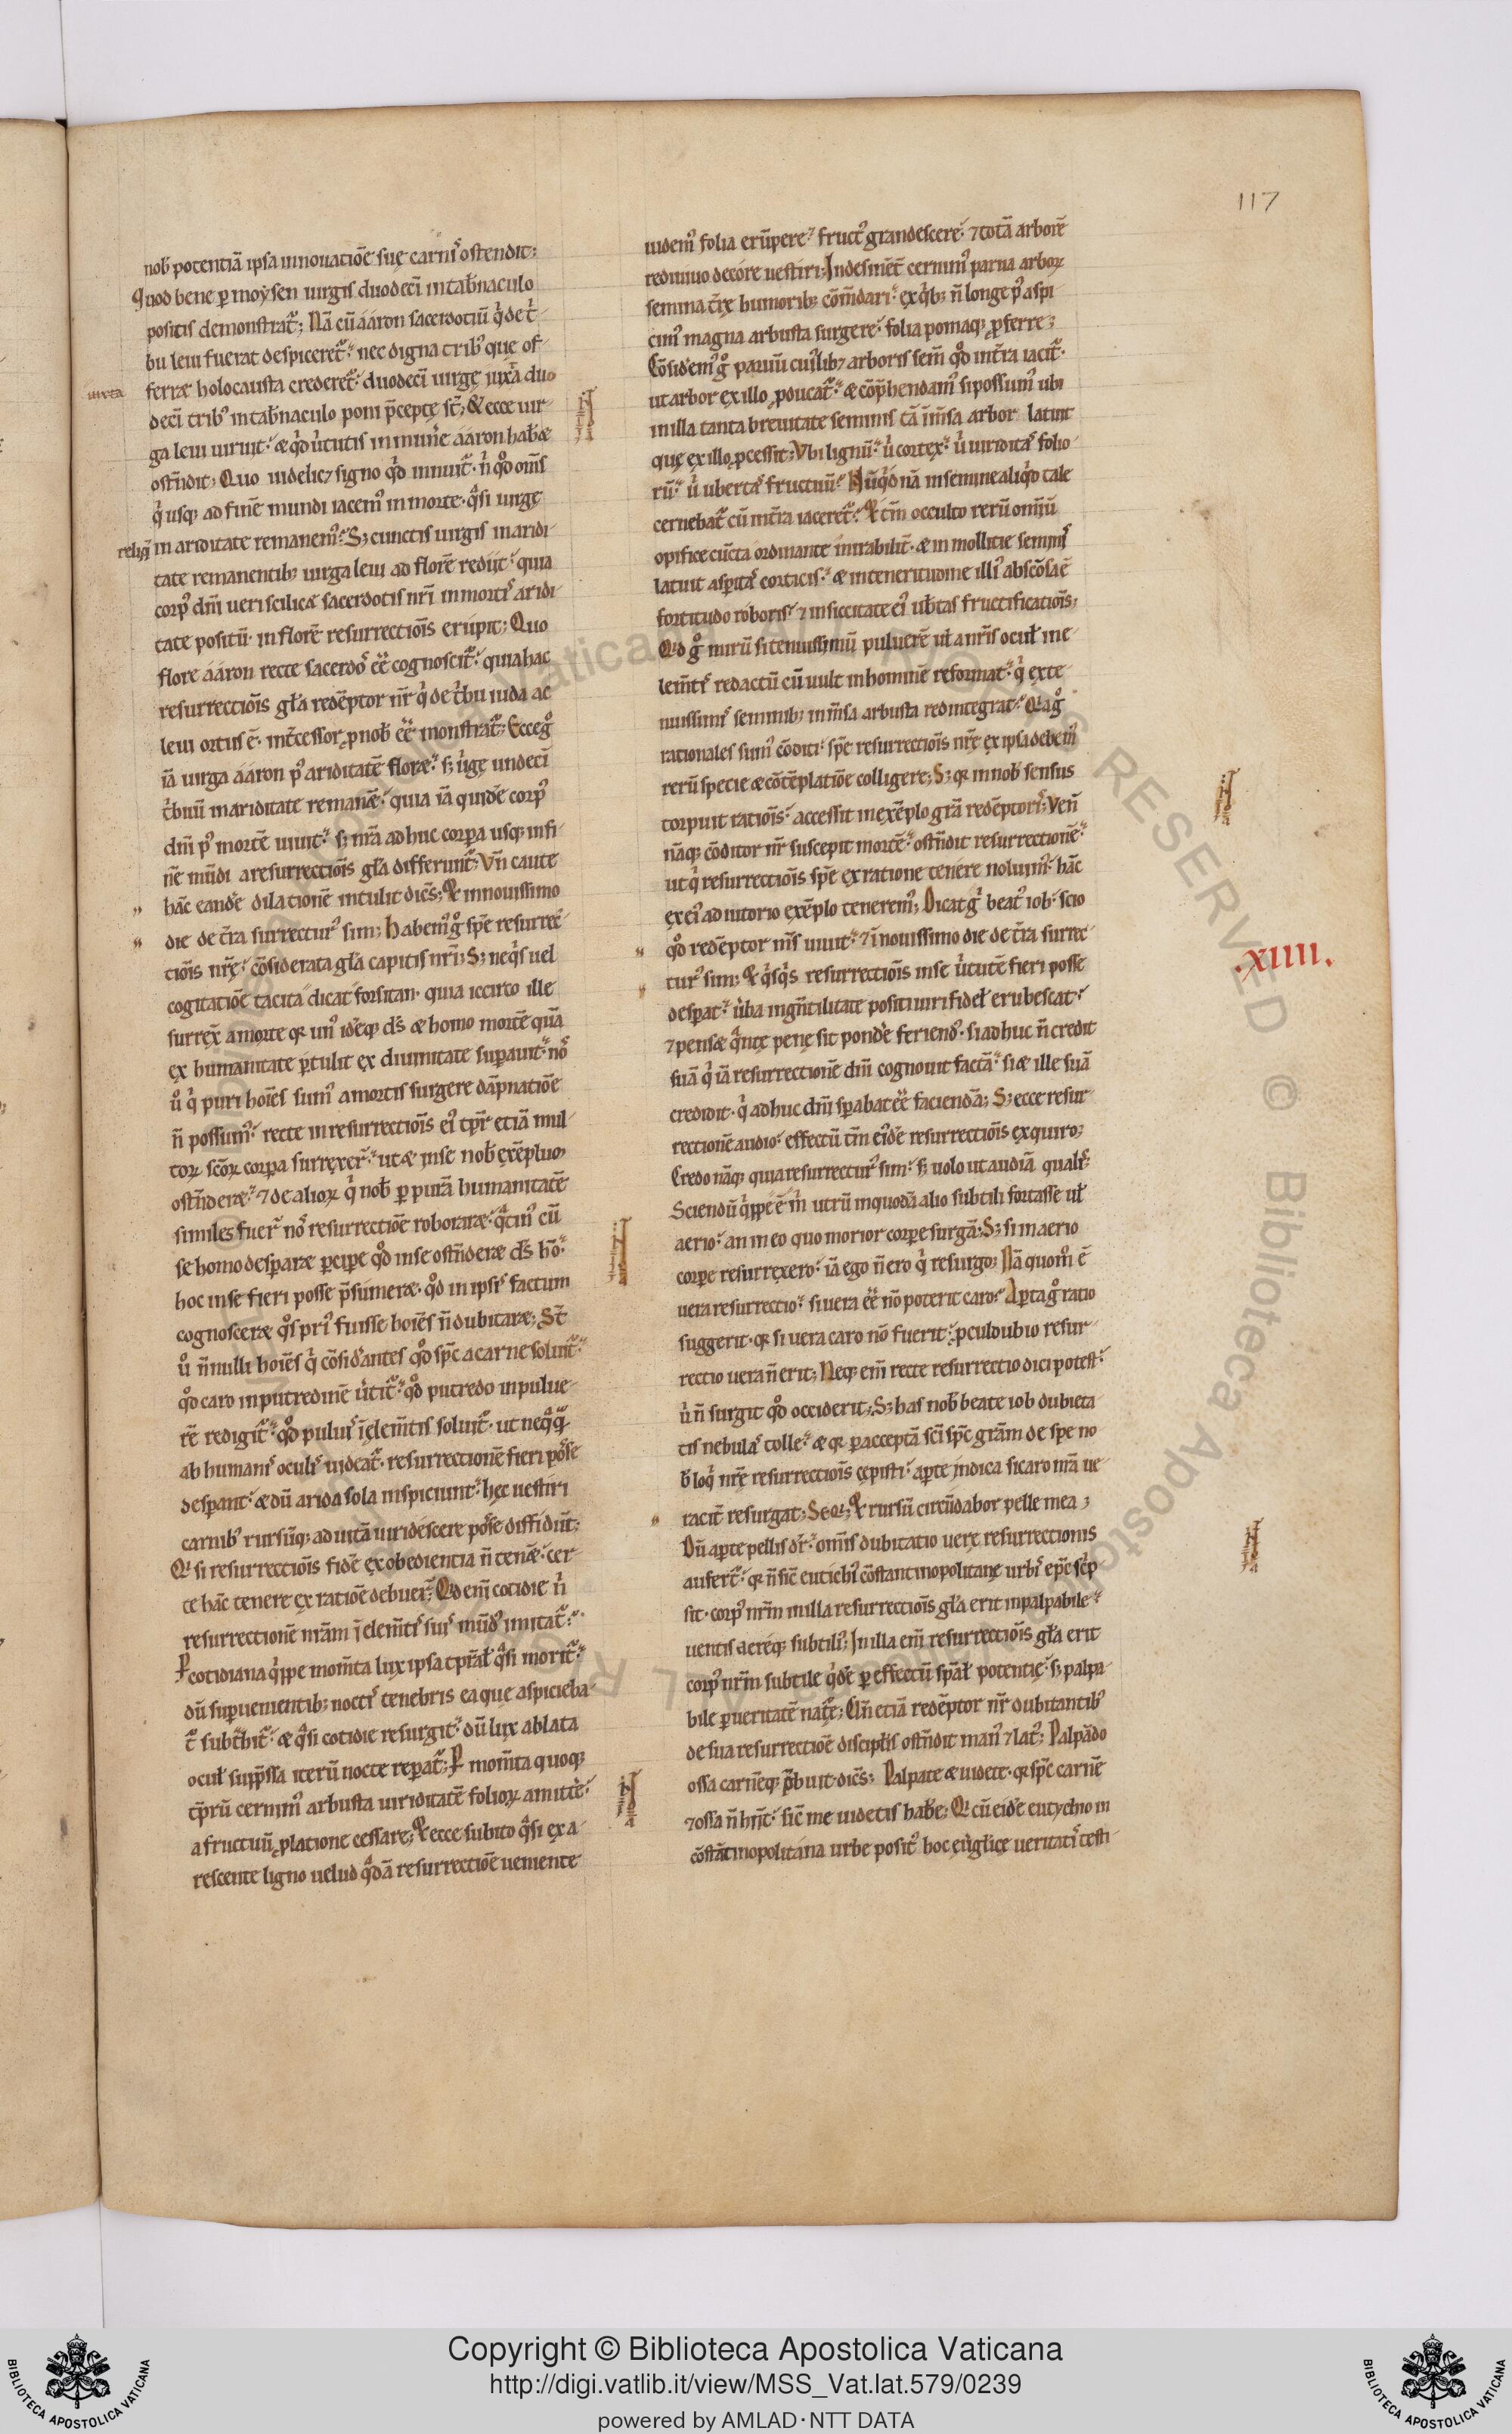 117
nob̄ potentiā ipsa innouatiōe suę carnis ostendit;
Quod bene p moẏsen uirgis duodecī intab̄naculo
positis demonstrat᷑; Nā cū ááron sacerdotiū q̇ de t̓
bu leui fuerat despiceret᷑. nec digna tribꝰ que of
ferræ holocausta crederet᷑. duodecī uirgę iuxā duo
iuxta
decī tribꝰ intab̄naculo poni p̄ceptę st̄; & ecce uir
ga leui uiruit. & qd̓ útutis in munē ááron hab&
ostn̄dit; Quo uidelicꝫ signo qd̓ innuit᷑. n̓ qd̊ om̄s
q̇ usqꝫ ad finē mundi iacemꝰ in morte. q̄si uirgę
reliq̄ in ariditate remanemꝰ; Sꝫ cunctis uirgis in aridi
tate remanentibꝫ uirga leui ad florē rediit. quia
corpꝰ dn̄i ueri scilic& sacerdotis nr̄i in mortis aridi
tate positū. in florē resurrectiōis erupit; Quo
flore ááron recte sacerdos ēē cognoscit᷑. quia hac
resurrectiōis gła redēptor nr̄ q̇ de t̓bu iuda ac
leui ortus ē. int̄cessor ꝓ nob̄ ēē monstrat᷑; Ecce g̊
iā uirga ááron pꝰ ariditatē flor&. sꝫ úgę undecī
t̓buū in ariditate reman&. quia iā quidē corpꝰ
dn̄i pꝰ mortē uiuit. sꝫ nr̄a adhuc corpa usqꝫ in fi
nē mūdi a resurrectiōis gła differunt᷑; Vn̄ caute
hāc eandē dilationē intulit dicēs; Et in nouissimo
die de t̄ra surrecturꝰ sum; Habemꝰ g̊ spē resurrec
tiōis nr̄ę. cōsiderata gła capitis nr̄i; Sꝫ ne q̇s uel
cogitatiōe tacita dicat forsitan. quia iccirco ille
surrex̄ a morte qꝫ unꝰ idēqꝫ ds̄ & homo mortē quā
ex humanitate ptulit ex diuinitate supauit. nos
ů q̇ puri hoīes sumꝰ a mortis surgere dāpnatiōe
n̄ possumꝰ. recte in resurrectiōis eiꝰ tp̄r etiā mul
toꝝ scōꝝ corpa surrexer̄. ut & in se nob̄ exēpluo
ostn̄der&. ⁊ de alioꝝ q̇ nob̄ p purā humanitatē
similes fuer̄ nos resurrectiōe roborar&. q̄tinꝰ cū
se homo despar& pcipe qd̊ in se ostn̄der& ds̄ hō.
hoc in se fieri posse p̄sumer&. qd̊ in ipsis factum
cognoscer& qs̊ pris fuisse hoīes n̄ dubitar&; St̄
ů n̄nulli hoīes q̇ cōsid̓antes qd̊ sp̄c a carne soluit᷑.
qd̊ caro in putredinē útit᷑. qd̊ putredo in pulue
rē redigit᷑. qd̊ puluis ī elem̄tis soluit᷑. ut neq̄q̄
ab humanis oculis uideat᷑. resurrectionē fieri posse
despant. & dū arida sola inspiciunt. hęc uestiri
carnibꝰ rursūqꝫ ad uitā uiridescere posse diffidūt;
Qi si resurrectiōis fidē ex obedientia n̄ ten&. cer
te hāc tenere ex ratiōe debuer̄; Qd enī cotidie n̓
resurrectionē nr̄am ī elem̄tis suis mūdꝰ imitat᷑.
P cotidiana q̇ppe mom̄ta lux ipsa tpr̄al q̄si morit᷑.
dū supuenientibꝫ noctis tenebris ea que aspicieba
t᷑ subt̓hit᷑. & q̄si cotidie resurgit. dū lux ablata
ocuł supp̄ssa iterū nocte repat᷑; P mom̄ta quoqꝫ
tp̄rū cernimꝰ arbusta uiriditatē folioꝝ amittē.
a fructuū ꝓlatione cessare; Et ecce subito q̄si ex a
rescente ligno uelud q̄dā resurrectiōe ueniente
uidemꝰ folia erūpere. fructꝰ grandescere. ⁊ totā arborē
rediuiuo decore uestiri; Indesinēt̄ cernimꝰ parua arboꝝ
semina t̄rę humoribꝫ cōm̄dari. ex q̇bꝫ n̄ longe pꝰ aspi
cimꝰ magna arbusta surgere. folia pomaqꝫ ꝓferre;
Cōsidemꝰ g̊ paruū cuiꝰlibꝫ arboris sem̄ qd̊ int̄ra iacit᷑.
ut arbor ex illo ꝓducat᷑. & cōp̄hendamꝰ si possumꝰ ubi
in illa tanta breuitate seminis tā īm̄sa arbor latuit
que ex illo ꝓcessit; Vbi lignū. ů cortex. ů uiriditas folio
rū. ů ubertas fructuū. Nūq̇d nā in semine aliqd̓ tale
cernebat᷑ cū in t̄ra iaceret᷑. Et tm̄ occulto rerū omniū
opifice cūcta ordinante mirabilit̄. & in mollitie seminis
latuit aspitas corticis. & in teneritudine illiꝰ abscōsa ē
fortitudo roboris. ⁊ in siccitate eiꝰ ub̄tas fructificatiōis;
Qd g̊ mirū si tenuissimū puluerē uł a nr̄is ocuł in e
lem̄tis redactū cū uult in hominē reformat. q̇ ex te
nuissimis seminibꝫ inm̄sa arbusta redintegrat. Qa g̊
rationales sumꝰ cōditi. spē resurrectiōis nr̄ę ex ipsa debemꝰ
rerū specie & cōtēplatiōe colligere; Sꝫ qꝫ in nob̄ sensus
torpuit ratiōis. accessit in exēplo grā redēptoris; Venī
nāqꝫ cōditor nr̄ suscepit mortē. ostn̄dit resurrectionē.
ut q̇ resurrectiōis spē ex ratione tenere nolumꝰ. hāc
ex eiꝰ adiutorio exēplo teneremꝰ; Dicat g̊ beatꝰ iob. scio
qd̊ redēptor ms̄ uiuit. ⁊ ī nouissimo die de t̄ra surrec
turꝰ sum; Et q̇sq̇s resurrectiōis in se útutē fieri posse
despat. úba in gn̄tilitate positi uiri fideł erubescat.
⁊ pens& q̄nte penę sit pondē feriendꝰ. si adhuc n̄ credit
suā q̇ iā resurrectionē dn̄i cognouit factā. si & ille suā
credidit. q̇ adhuc dn̄i spabat ēē faciendā; Sꝫ ecce resur
rectionē audio. effectū tm̄ eiꝰdē resurrectiōis exquiro;
Credo nāqꝫ quia resurrecturꝰ sum. sꝫ uolo ut audiā qualis;
Sciendū q̇ppe ē m̓ utrū in quodā alio subtili fortasse uł
aerio. an in eo quo morior corpe surgā; Sꝫ si in aerio
corpe resurrexero. iā ego n̄ ero q̇ resurgo; Nā quom̊ ē
uera resurrectio. si uera ēē nō poterit caro. Apta g̊ ratio
suggerit. qꝫ si uera caro nō fuerit. ꝓculdubio resur
rectio uera n̄ erit; Neqꝫ em̄ recte resurrectio dici potest.
ů n̄ surgit qd̊ occiderit; Sꝫ has nob̄ beate iob dubieta
tis nebulas tolle. & qꝫ p acceptā sci sp̄c grām de spe no
b̄ loq̇ nr̄ę resurrectiōis cepisti. apte indica si caro nr̄a ue
racit̄ resurgat; Seqꝫ; Et rursū circūdabor pelle mea;
Dū apte pellis dr̄. omīs dubitatio uerę resurrectionis
aufert᷑. qꝫ n̄ sic̄ euticiꝰ cōstantinopolitanę urbis epc̄ sc̓p
sit. corpꝰ nr̄m in illa resurrectiōis gła erit inpalpabile.
uentis aereqꝫ subtiliꝰ; In illa em̄ resurrectiōis gła erit
corpꝰ nr̄m subtile q̇dē p effectū spāł potentię. sꝫ palpa
bile p ueritatē nat̄ę; Vn̄ etiā redēptor nr̄ dubitantibꝰ
de sua resurrectiōe discipłis ostn̄dit manꝰ ⁊ latꝰ; Palpādo
ossa carnēqꝫ p̄buit. dicēs; Palpate & uidete. qꝫ sp̄c carnē
⁊ ossa n̄ hn̄t. sic̄ me uidetis hab̄e; Qi cū eidē eutychio in
cōstātinopolitana urbe positꝰ hoc euḡlicę ueritatis testi
.XIIII.
Copyright © Biblioteca Apostolica Vaticana
http://digi.vatlib.it/view/MSS_Vat.lat.579/0239
powered by AMLAD·NTT DATA
BIBLIOTECA APOSTOLICA VATICANA
BIBLIOTECA APOSTOLICA VATICANA